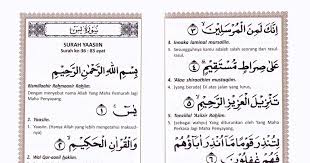 سورة يس
SURAH YAASIIN
Surah ke 36 : 83 ayat
بِسْمِ اللّٰهِ الرَّحْمٰنِ الرَّحِيْمِ
Bismillaahir Rahmaanir Rahiim.
Dengan menyebut nama Allah Yang Maha Pemurah lagi
Maha Penyayang.
يٰسٓ ﴿١﴾
1. Yaasiin.
1. Yaasiin. (Hanya Allah yang lebih mengetahui maksud-
nya).
وَالْقُرْاٰنِ الْحَكِيْمِ ﴿٢﴾
2. Wal Qur-aanil hakiim.
اِنَّكَ لَمِنَ الْمُرْسَلِيْنَ ﴿٣﴾
3. Innaka laminal mursaliin.
3. Sesungguhnya kamu adalah salah seorang dari rasul-
rasul.
عَلٰى صِرَاطٍ مُّسْتَقِيْمٍ ﴿٤﴾
4. 'Alaa shiraathim mustaqiim.
4. (yang berada) di atas jalan yang lurus.
تَنْزِيْلَ الْعَزِيْزِ الرَّحِيْمِ ﴿٥﴾
5. Tanziilal 'Aziizir Rahiim.
5. (sebagai wahyu) Yang diturunkan oleh Allah Yang Maha
Perkasa lagi Maha Penyayang.
لِتُنْذِرَ قَوْمًا مَّآ اُنْذِرَ اٰبَآؤُهُمْ
فَهُمْ غٰفِلُوْنَ